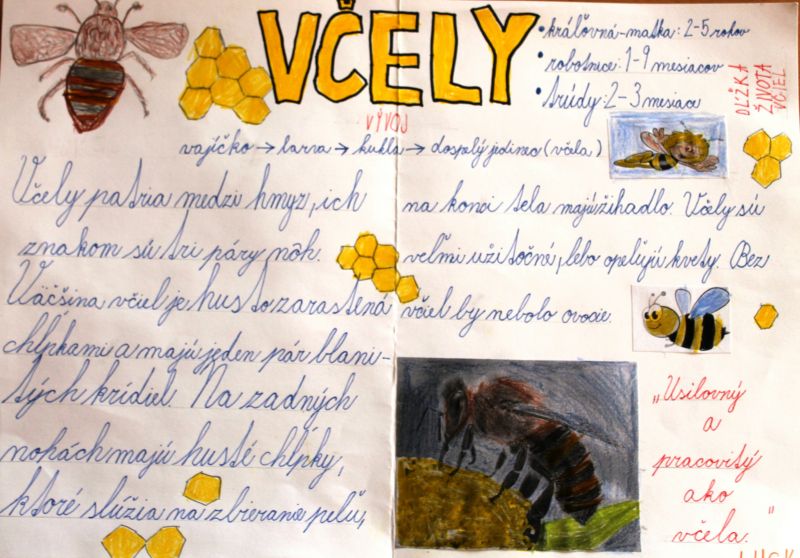 VČELY
• kráľovná-matka: 2-5 rokov
• robotnice: 1-9 mesiacov
• trúdy: 2-3 mesiace
DĹŽKA
ŽIVOTA
VČIEL
VÝVOJ
vajíčko → larva → kukla → dospelý jedinec (včela)
Včely patria medzi hmyz, ich
znakom sú tri páry nôh.
Väčšina včiel je husto zarastená
chĺpkami a majú jeden pár blani-
tých krídiel. Na zadných
nohách majú husté chĺpky,
ktoré slúžia na zbieranie peľu,
na konci tela majú žihadlo. Včely sú
veľmi užitočné, lebo opeľujú kvety. Bez
včiel by nebolo ovocie.
„Usilovný
a
pracovitý
ako
včela.“